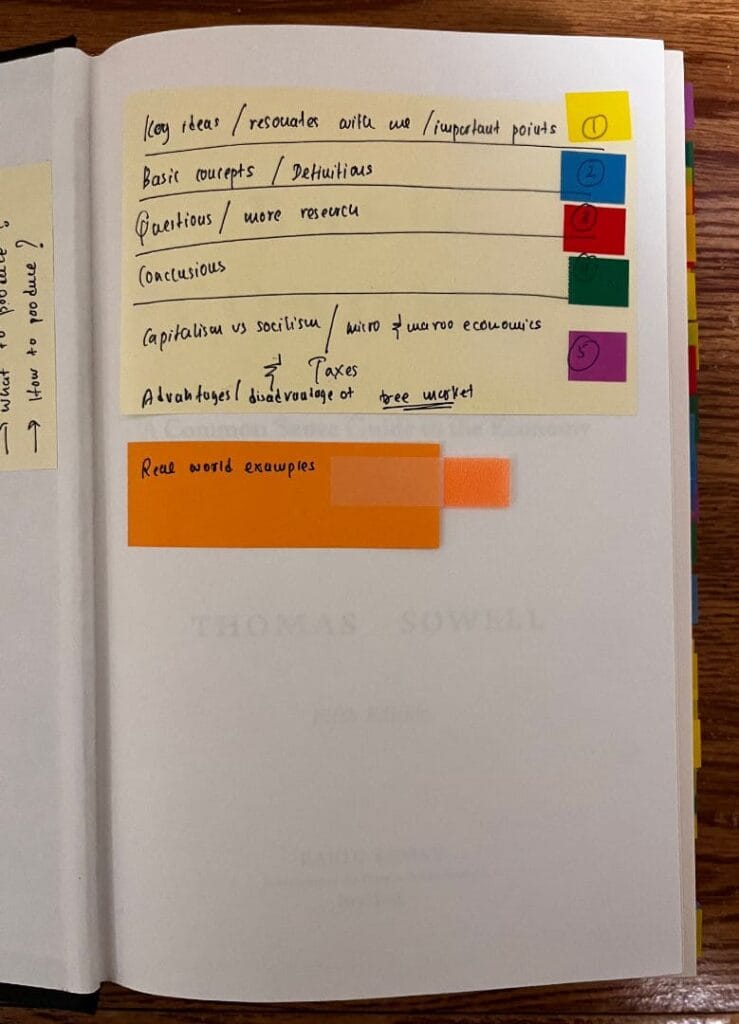 → What to produce ?
→ How to produce ?
Key ideas / resonates with me / important points ①
Basic concepts / Definitions ②
Questions / more research ③
Conclusions ④
Capitalism vs socilism / micro & maroo economics ⑤
& Taxes
Advantages / disadvantage of free market
Real world examples
A Common Sense Guide to the Economy
THOMAS SOWELL
Fifth Edition
BASIC BOOKS
New York